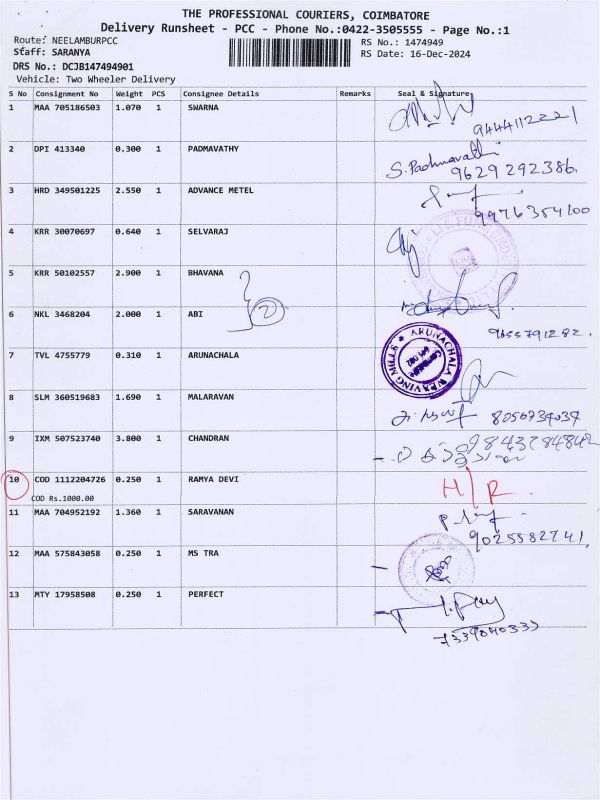 THE PROFESSIONAL COURIERS, COIMBATORE
Delivery Runsheet - PCC - Phone No.:0422-3505555 - Page No.:1
Route: NEELAMBURPCC
RS No.: 1474949
Staff: SARANYA
RS Date: 16-Dec-2024
DRS No.: DCJB147494901
Vehicle: Two Wheeler Delivery
S No Consignment No Weight PCS Consignee Details Remarks Seal & Signature
1 MAA 705186503 1.070 1 SWARNA
9444112221
2 DPI 413340 0.300 1 PADMAVATHY S. Padmavathi
9629 292386.
3 HRD 349501225 2.550 1 ADVANCE METEL
9976354100
4 KRR 30070697 0.640 1 SELVARAJ
5 KRR 50102557 2.900 1 BHAVANA
2
6 NKL 3468204 2.000 1 ABI
9655791282.
7 TVL 4755779 0.310 1 ARUNACHALA ARUNACHALA WEAVING MILLS
8 SLM 360519683 1.690 1 MALARAVAN
8050734034
9 IXM 507523740 3.800 1 CHANDRAN 9843784842
10 COD 1112204726 0.250 1 RAMYA DEVI H/R.
COD Rs.1000.00
11 MAA 704952192 1.360 1 SARAVANAN
9025582741.
12 MAA 575843058 0.250 1 MS TRA
13 MTY 17958508 0.250 1 PERFECT
7339040333